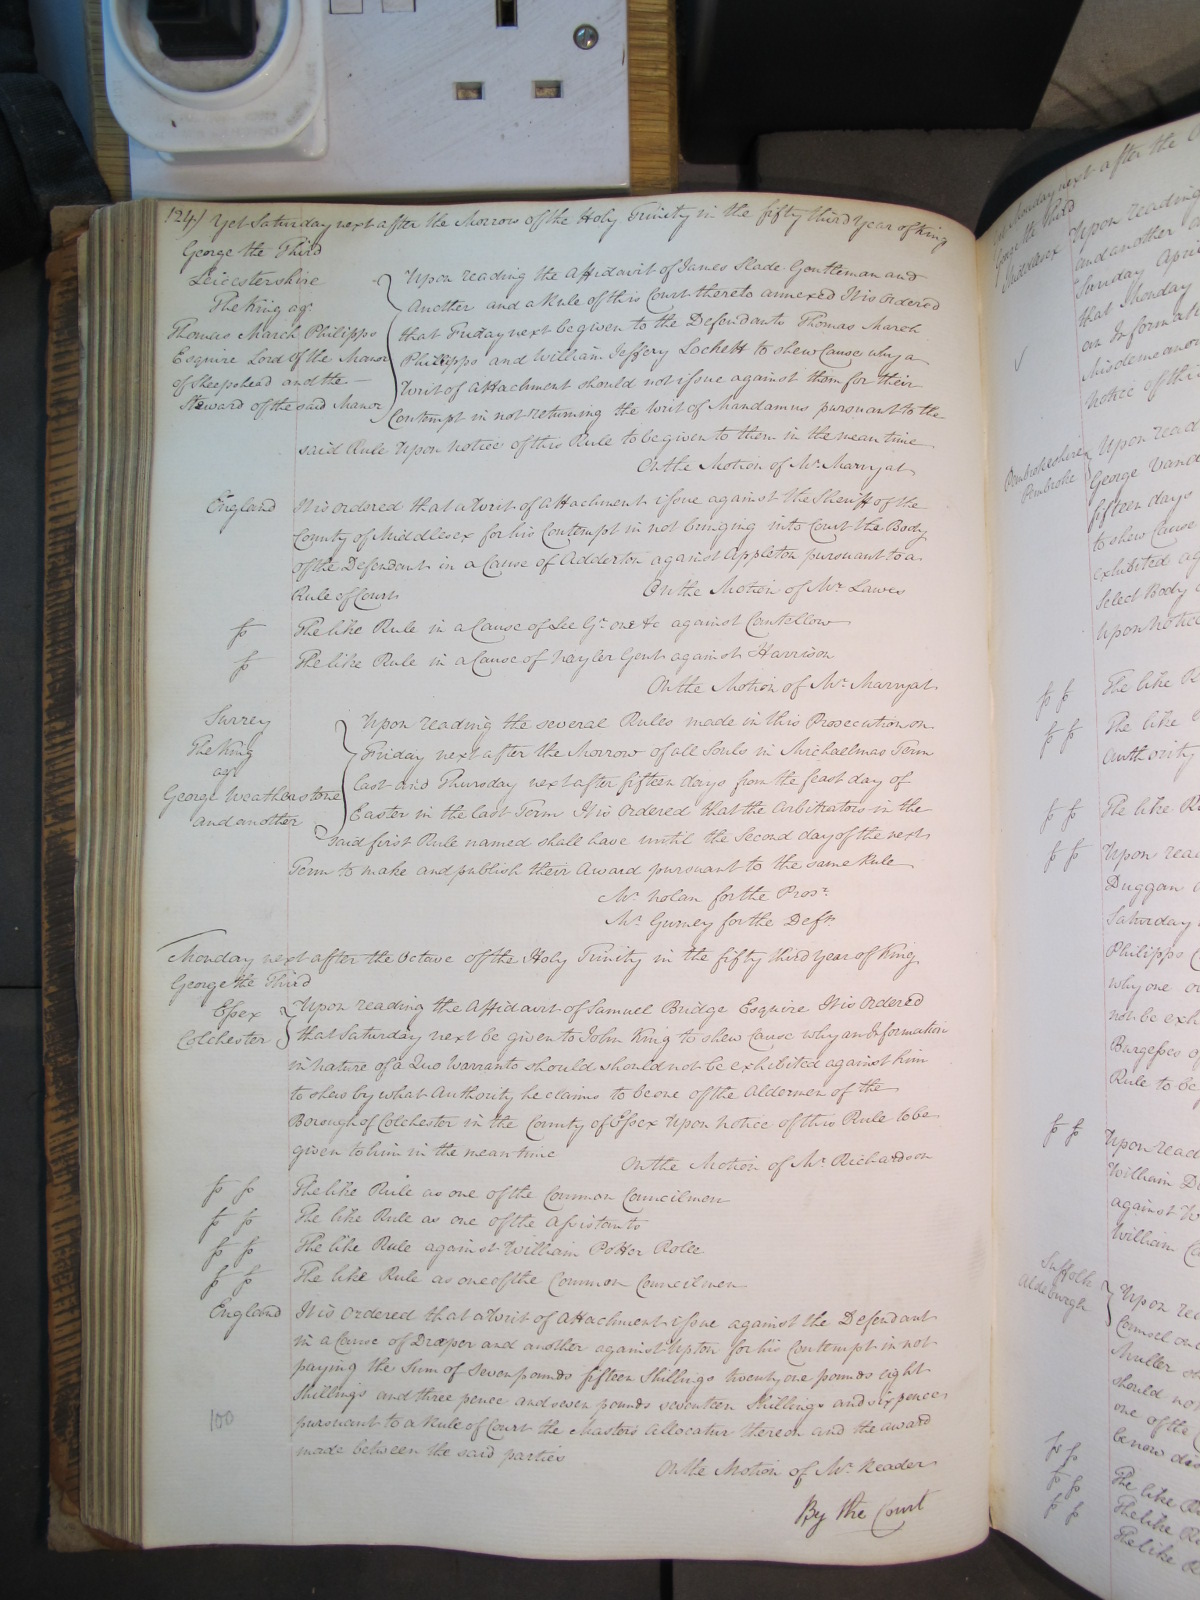 124/ Yet Saturday next after the Morrow of the Holy Trinity in the fifty third Year of King
George the Third
Leicestershire
The King agt
Thomas March Philipps
Esquire Lord of the Manor
of Sheepshead and the
Steward of the said Manor
Upon reading the Affidavit of James Slade Gentleman and
Another and a Rule of this Court thereto annexed It is Ordered
that Friday next be given to the Defendants Thomas March
Phillipps and William Jeffery Lockett to shew Cause why a
Writ of Attachment should not issue against them for their
Contempt in not returning the Writ of Mandamus pursuant to the
said Rule Upon notice of this Rule to be given to them in the mean time
On the Motion of Mr. Marryat
England It is ordered that a Writ of Attachment issue against the Sheriff of the
County of Middlesex for his Contempt in not bringing into Court the Body
of the Defendant in a Cause of Adderton against Appleton pursuant to a
Rule of Court On the Motion of Mr. Lawes
The like Rule in a Cause of Lee Gt. one &c against Cantellow
The like Rule in a Cause of Nayler Gent against Harrison
On the Motion of Mr. Marryat
Surrey
The King
agt
George Weatherstone
and another
Upon reading the several Rules made in this Prosecution on
Friday next after the Morrow of all Souls in Michaelmas Term
last and Thursday next after fifteen days from the feast day of
Easter in the last Term It is Ordered that the Arbitrators in the
said first Rule named shall have until the Second day of the next
Term to make and publish their Award pursuant to the same Rule
Mr. Nolan for the Prosr.
Mr. Gurney for the Defts.
Monday next after the Octave of the Holy Trinity in the fifty third Year of King
George the Third
Essex
Colchester
Upon reading the Affidavit of Samuel Bridge Esquire It is Ordered
that Saturday next be given to John King to shew Cause why an Information
in nature of a Quo Warranto should should not be exhibited against him
to shew by what Authority he claims to be one of the Aldermen of the
Borough of Colchester in the County of Essex Upon notice of this Rule to be
given to him in the mean time On the Motion of Mr. Richardson
The like Rule as one of the Common Councilmen
The like Rule as one of the Assistants
The like Rule against William Potter Rolle
The like Rule as one of the Common Councilmen
England It is Ordered that a Writ of Attachment issue against the Defendant
in a Cause of Draper and another against Upton for his Contempt in not
paying the Sum of seven pounds fifteen Shillings twenty one pounds eight
Shillings and three pence and seven pounds seventeen Shillings and six pence
pursuant to a Rule of Court the Masters Allocatur thereon and the award
made between the said parties
100
On the Motion of Mr. Reader
By the Court
Monday next after the
George the Third
Middlesex
Upon reading
and another
Sunday
that Monday
an Informati
Misdemeanor
notice of thi
Pembrokeshire
Pembroke
Upon read
George Vand
fifteen days
to shew Cause
exhibited ag
Select Body
Upon notice
The like R
The like
Authority
The like Ru
Upon read
Duggan
Saturday
Philipps
why one
not be exh
Burgesses of
Rule to be
Upon read
William D
against W
William
Suffolk
Aldeburgh
Upon rea
Counsel on
Muller
should not
one of the
The like R
The like R
The like R